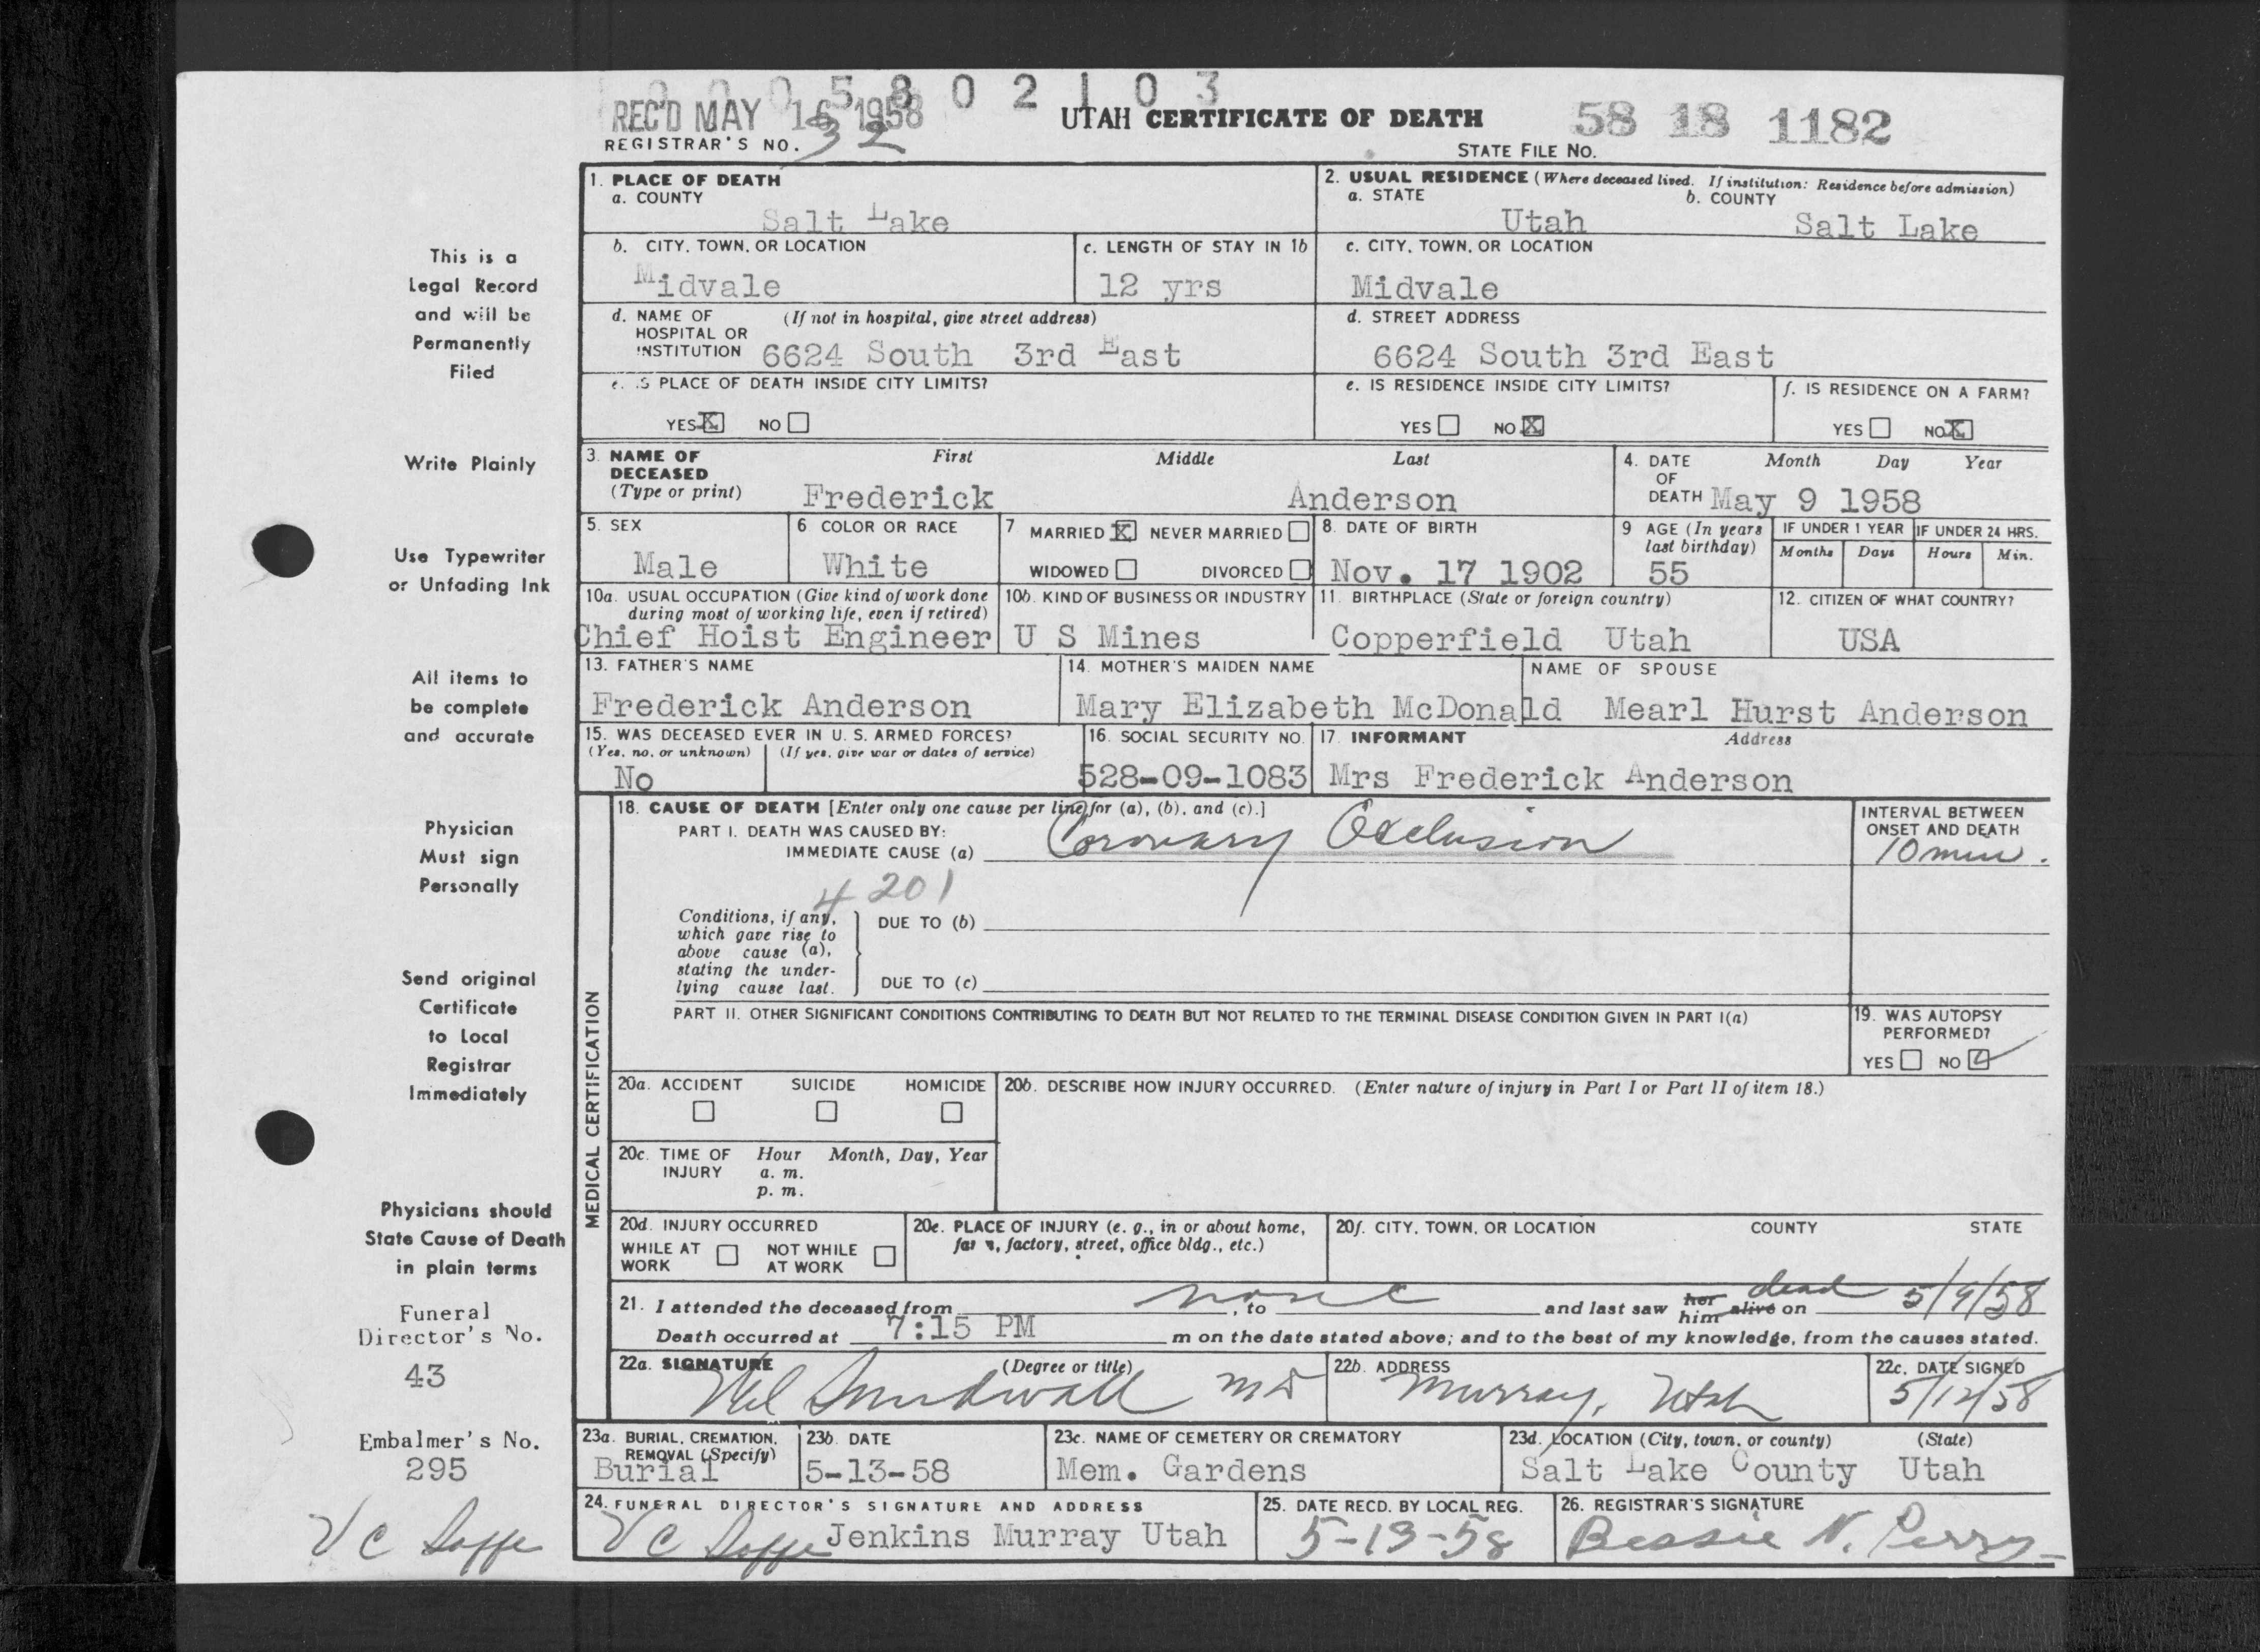 0 0 0 5 8 0 2 1 0 3
REC'D MAY 16 1958
UTAH CERTIFICATE OF DEATH
58 18 1182
REGISTRAR'S NO. 32
STATE FILE NO.
This is a
Legal Record
and will be
Permanently
Filed
Write Plainly
Use Typewriter
or Unfading Ink
All items to
be complete
and accurate
Physician
Must sign
Personally
Send original
Certificate
to Local
Registrar
Immediately
Physicians should
State Cause of Death
in plain terms
Funeral
Director's No.
43
Embalmer's No.
295
V C
1. PLACE OF DEATH
a. COUNTY
Salt Lake
2. USUAL RESIDENCE (Where deceased lived. If institution: Residence before admission)
a. STATE b. COUNTY
Utah Salt Lake
b. CITY, TOWN, OR LOCATION
Midvale
c. LENGTH OF STAY IN 1b
12 yrs
c. CITY, TOWN, OR LOCATION
Midvale
d. NAME OF (If not in hospital, give street address)
HOSPITAL OR
INSTITUTION 6624 South 3rd East
d. STREET ADDRESS
6624 South 3rd East
e. IS PLACE OF DEATH INSIDE CITY LIMITS?
YES X NO
e. IS RESIDENCE INSIDE CITY LIMITS?
YES NO X
f. IS RESIDENCE ON A FARM?
YES NO X
3. NAME OF First Middle Last
DECEASED
(Type or print) Frederick Anderson
4. DATE Month Day Year
OF
DEATH May 9 1958
5. SEX
Male
6 COLOR OR RACE
White
7 MARRIED X NEVER MARRIED
WIDOWED DIVORCED
8. DATE OF BIRTH
Nov. 17 1902
9 AGE (In years
last birthday)
55
IF UNDER 1 YEAR
Months Days
IF UNDER 24 HRS.
Hours Min.
10a. USUAL OCCUPATION (Give kind of work done
during most of working life, even if retired)
Chief Hoist Engineer
10b. KIND OF BUSINESS OR INDUSTRY
U S Mines
11. BIRTHPLACE (State or foreign country)
Copperfield Utah
12. CITIZEN OF WHAT COUNTRY?
USA
13. FATHER'S NAME
Frederick Anderson
14. MOTHER'S MAIDEN NAME
Mary Elizabeth McDonald
NAME OF SPOUSE
Mearl Hurst Anderson
15. WAS DECEASED EVER IN U. S. ARMED FORCES?
(Yes, no, or unknown) (If yes, give war or dates of service)
No
16. SOCIAL SECURITY NO.
528-09-1083
17. INFORMANT Address
Mrs Frederick Anderson
MEDICAL CERTIFICATION
18. CAUSE OF DEATH [Enter only one cause per line for (a), (b), and (c).]
PART I. DEATH WAS CAUSED BY:
IMMEDIATE CAUSE (a) Coronary Occlusion
INTERVAL BETWEEN
ONSET AND DEATH
10 min.
4201
Conditions, if any,
which gave rise to
above cause (a),
stating the under-
lying cause last.
DUE TO (b)
DUE TO (c)
PART II. OTHER SIGNIFICANT CONDITIONS CONTRIBUTING TO DEATH BUT NOT RELATED TO THE TERMINAL DISEASE CONDITION GIVEN IN PART I(a)
19. WAS AUTOPSY
PERFORMED?
YES NO ✓
20a. ACCIDENT SUICIDE HOMICIDE
20b. DESCRIBE HOW INJURY OCCURRED. (Enter nature of injury in Part I or Part II of item 18.)
20c. TIME OF Hour Month, Day, Year
INJURY a. m.
p. m.
20d. INJURY OCCURRED
WHILE AT WORK NOT WHILE AT WORK
20e. PLACE OF INJURY (e. g., in or about home,
farm, factory, street, office bldg., etc.)
20f. CITY, TOWN, OR LOCATION COUNTY STATE
21. I attended the deceased from none, to and last saw her him alive dead on 5/9/58
Death occurred at 7:15 PM m on the date stated above; and to the best of my knowledge, from the causes stated.
22a. SIGNATURE (Degree or title)
Sundwall MD
22b. ADDRESS
Murray, Utah
22c. DATE SIGNED
5/12/58
23a. BURIAL, CREMATION,
REMOVAL (Specify)
Burial
23b. DATE
5-13-58
23c. NAME OF CEMETERY OR CREMATORY
Mem. Gardens
23d. LOCATION (City, town, or county) (State)
Salt Lake County Utah
24. FUNERAL DIRECTOR'S SIGNATURE AND ADDRESS
V C Jenkins Murray Utah
25. DATE RECD. BY LOCAL REG.
5-13-58
26. REGISTRAR'S SIGNATURE
Bessie N. Perry